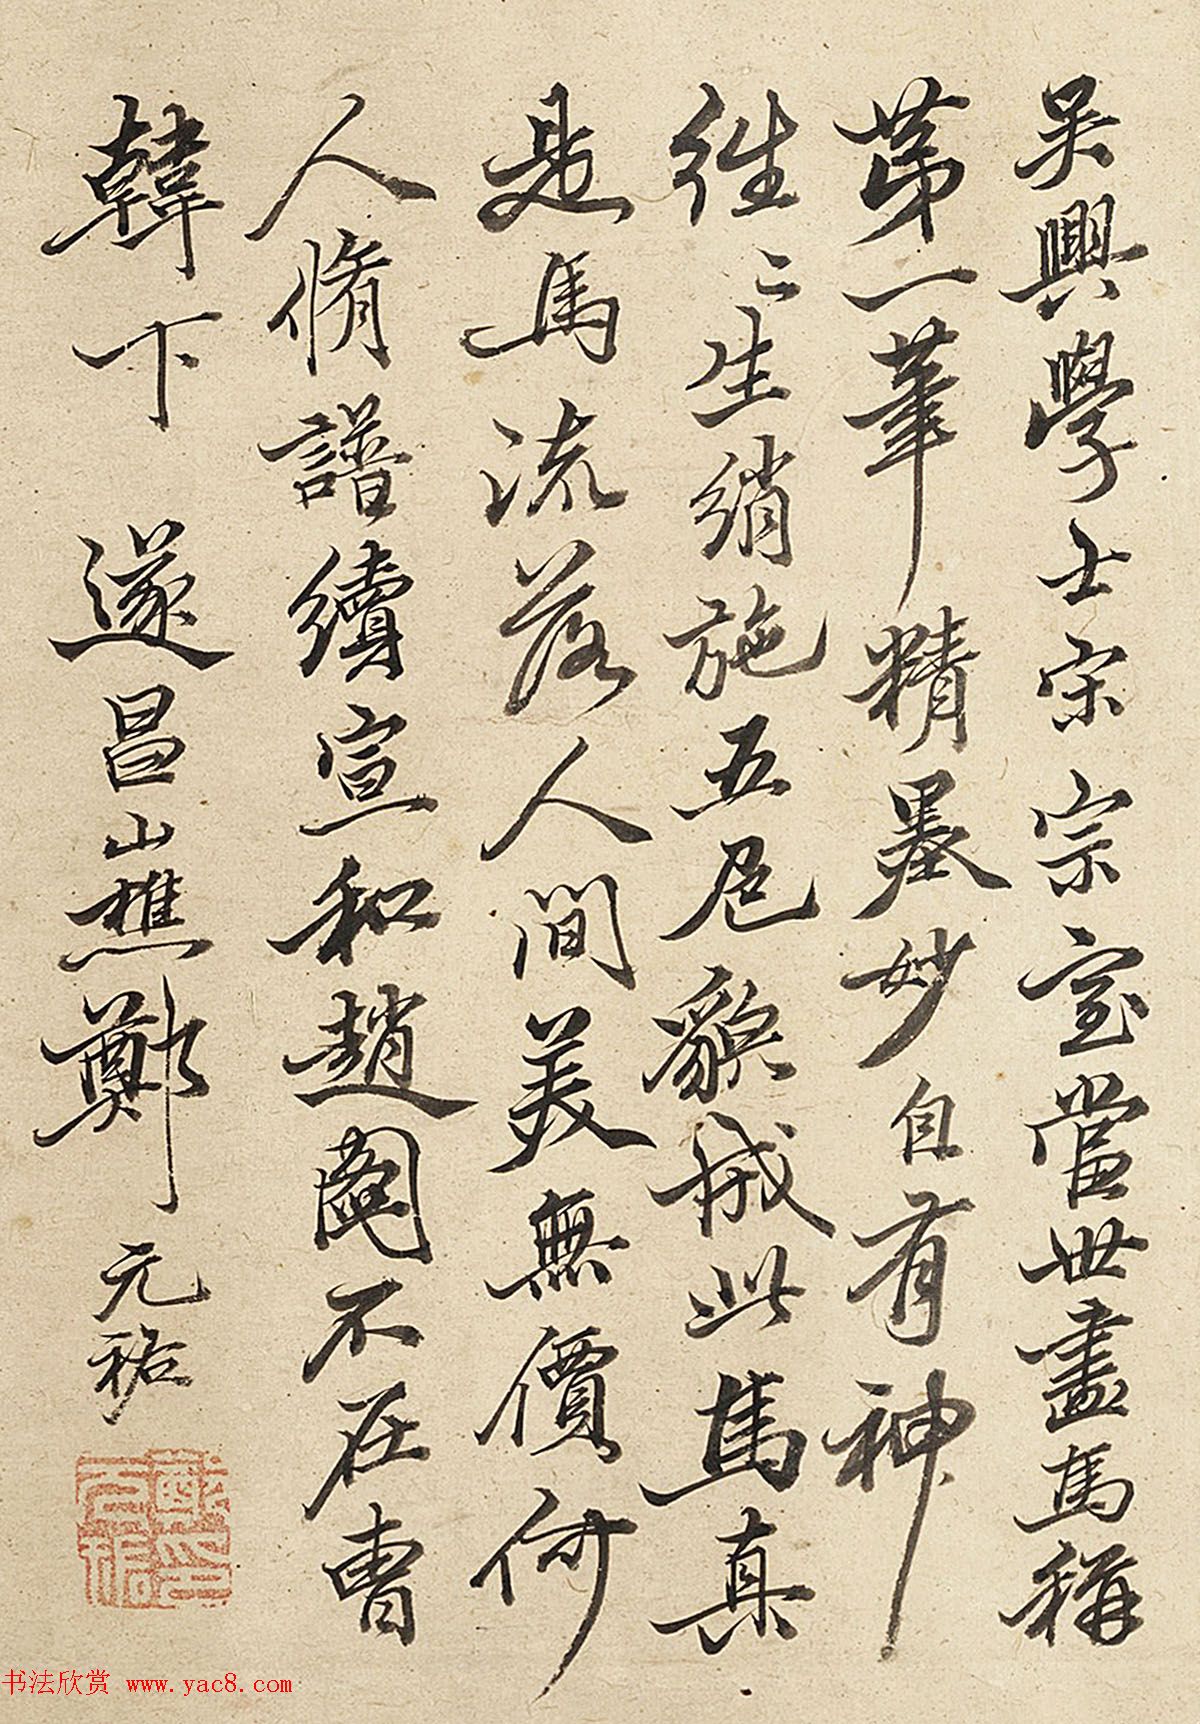 吳興學士宋宗室當世畫馬稱
苐一筆精墨妙自有神
往〻生綃施五色貌成此馬真
是馬流落人間美無價何
人脩譜續宣和趙圖不在曹
韓下 遂昌山樵鄭元祐
書法欣赏 www.yac8.com